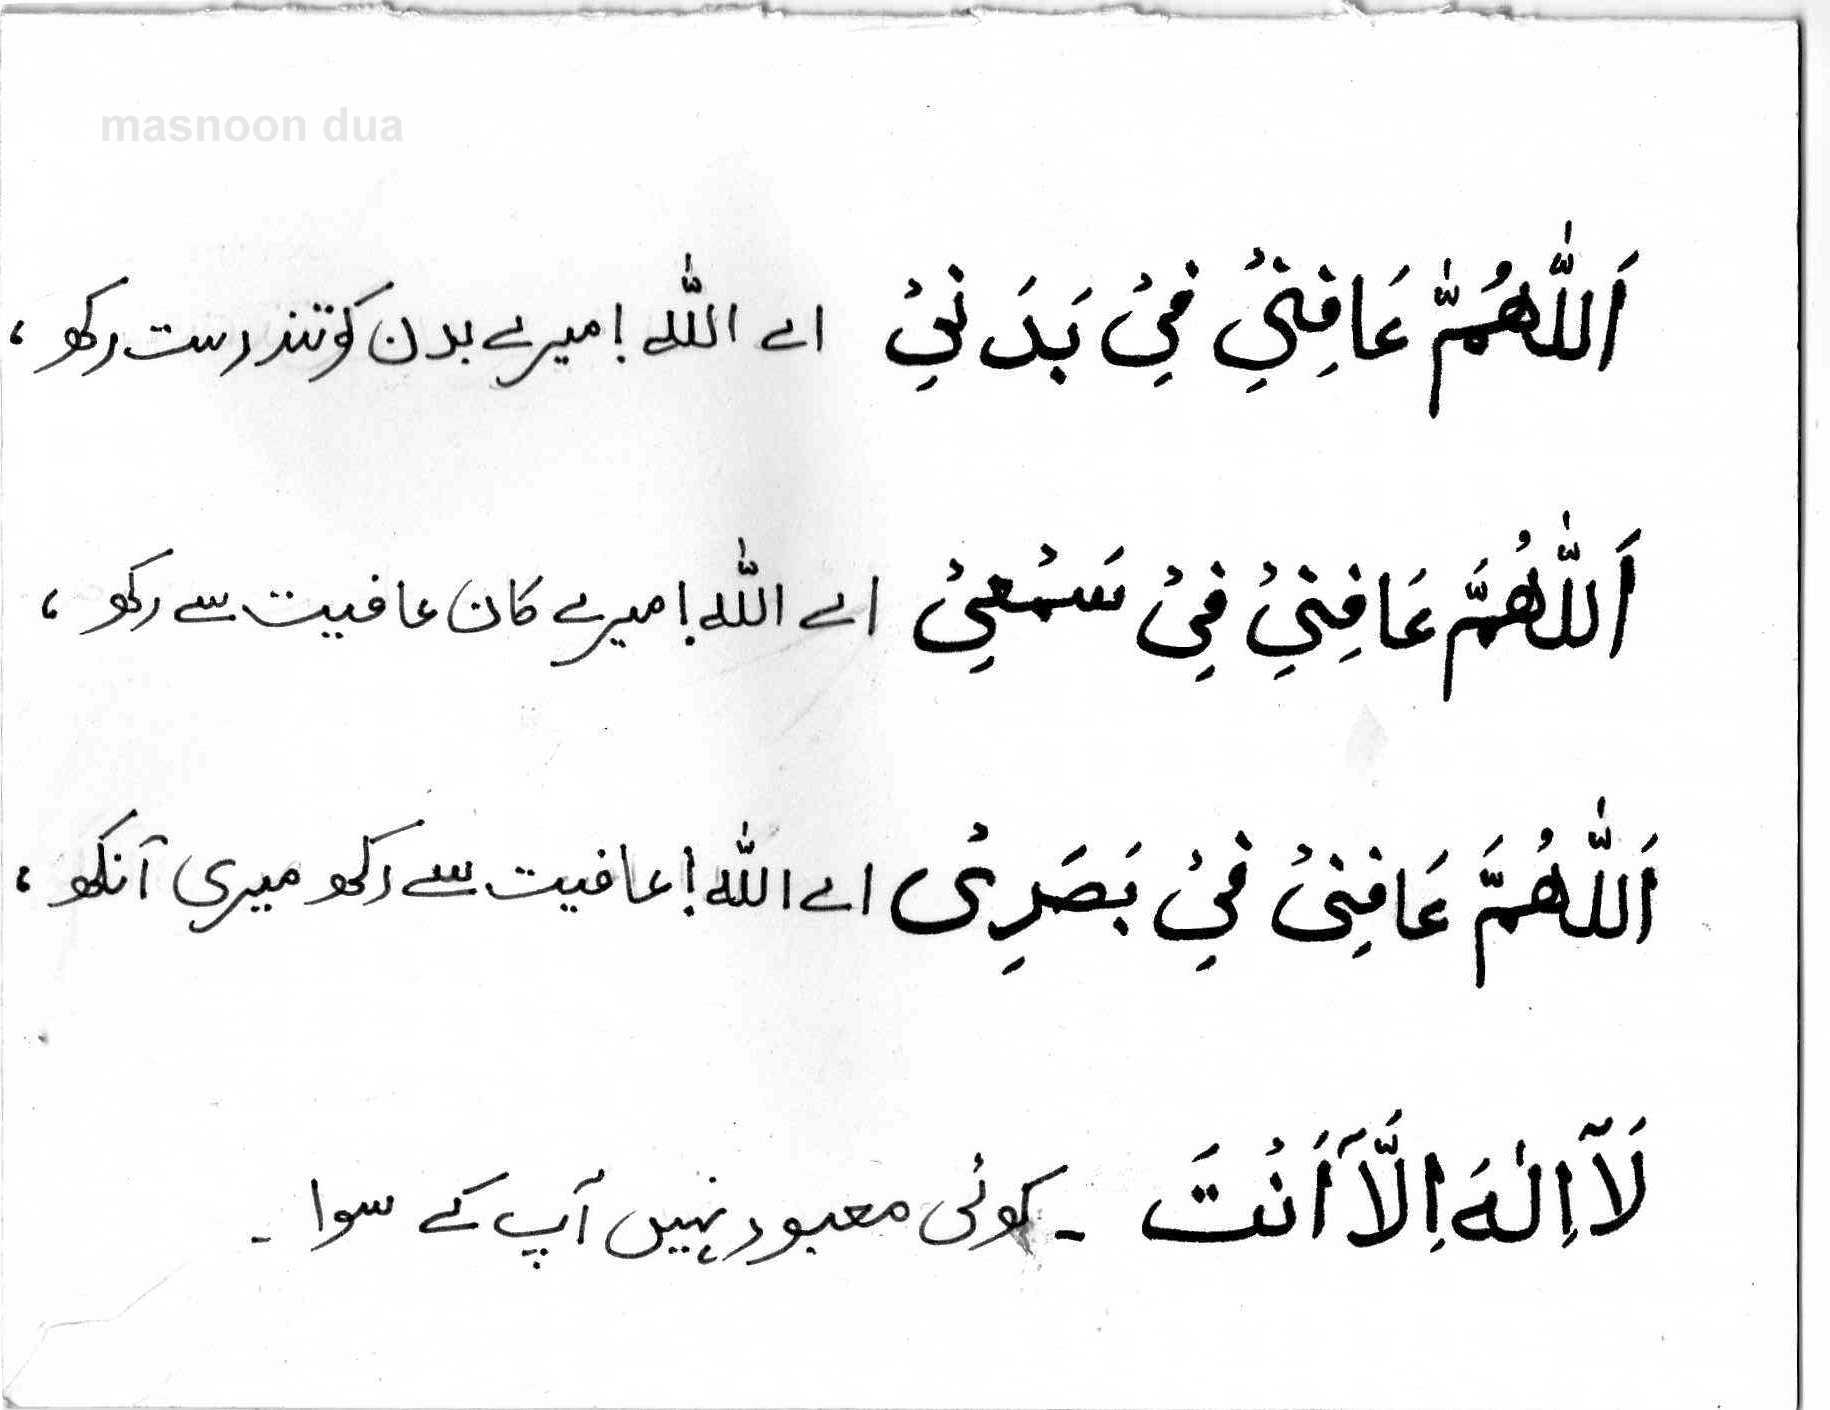 masnoon dua
اَللّٰهُمَّ عَافِنِیْ فِیْ بَدَنِیْ اے اللّٰہ! میرے بدن کو تندرست رکھو ،
اَللّٰهُمَّ عَافِنِیْ فِیْ سَمْعِیْ اے اللّٰہ! میرے کان عافیت سے رکھو ،
اَللّٰهُمَّ عَافِنِیْ فِیْ بَصَرِیْ اے اللّٰہ! عافیت سے رکھو میری آنکھ ،
لَآ اِلٰهَ اِلَّآ اَنْتَ ۔ کوئی معبود نہیں آپ کے سوا ۔